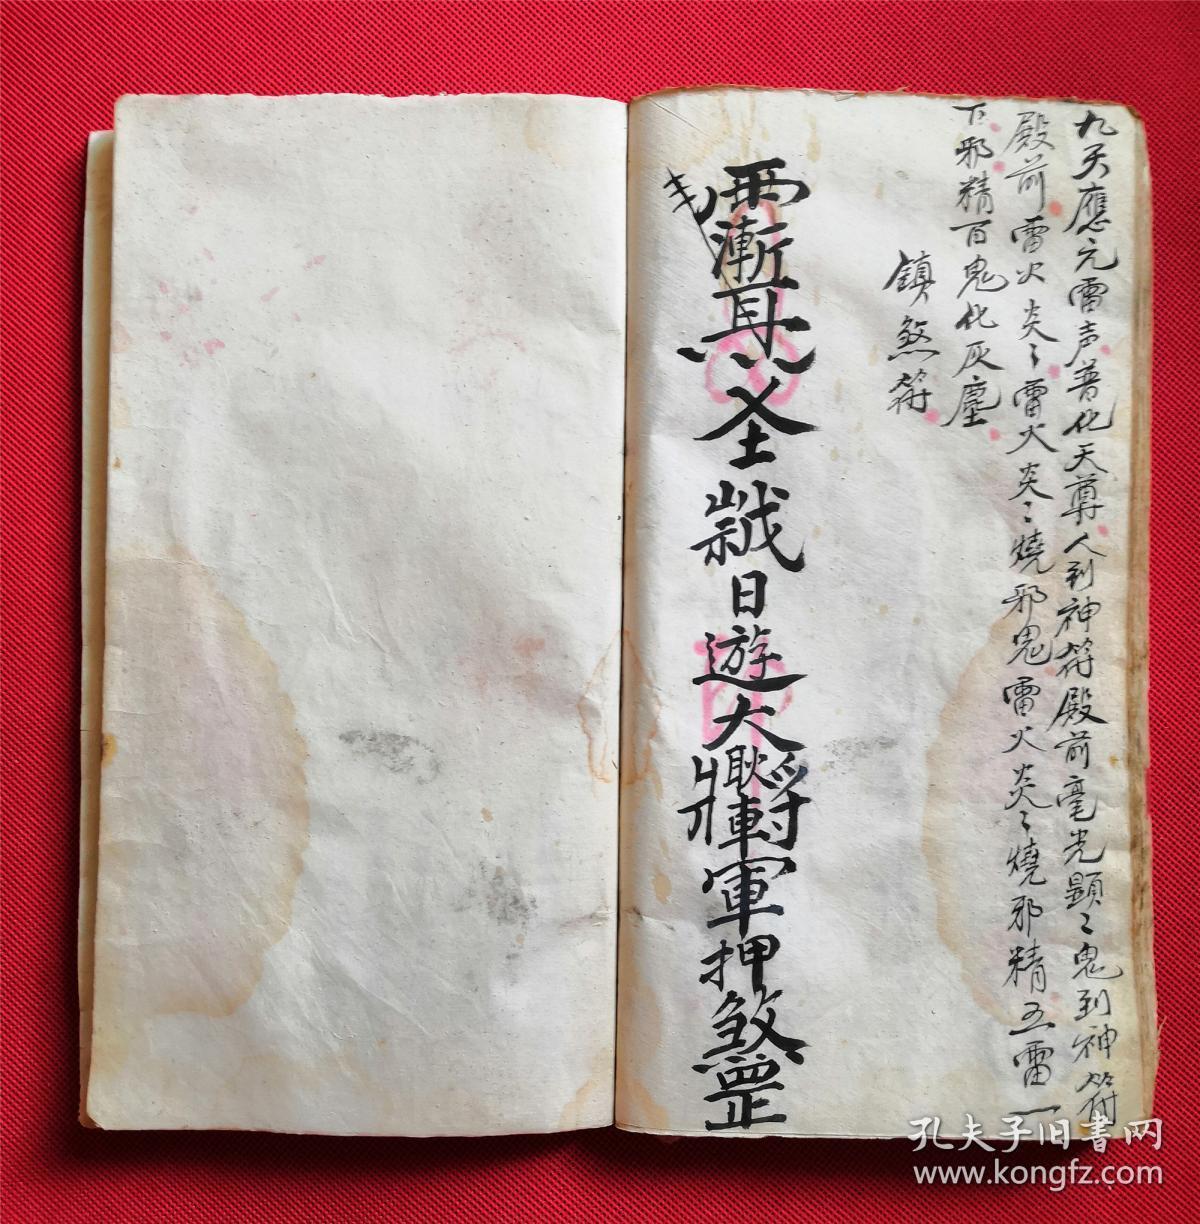 九天應元雷声普化天尊人到神符殿前毫光顯〻鬼到神符
殿前雷火炎〻雷火炎〻燒邪鬼雷火炎〻燒邪精五雷一
下邪精百鬼化灰塵
鎮煞符
日遊大將軍押煞罡
孔夫子旧书网
www.kongfz.com